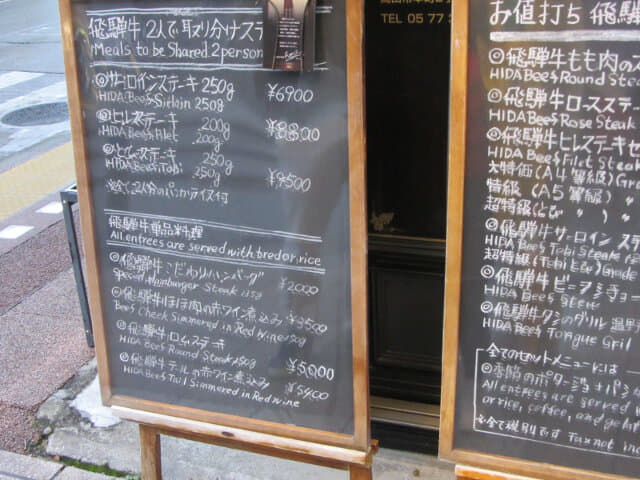 TEL 05 77 3
飛騨牛 2人で取り分けステ
Meals to be Shared 2person
◎サーロインステーキ 250g ¥6900
HIDA Beef Sirloin 250g
◎ヒレステーキ 200g
HIDA Beef Filet 200g
◎とびステーキ 250g ¥9500
HIDA Beef Tobi 250g
飛騨牛単品料理
All entrees are served with bred or rice
◎飛騨牛こだわりハンバーグ ¥2000
Special Hamburger Steak 150g
◎飛騨牛ほほ肉の赤ワイン煮込み ¥3500
Beef Cheek Simmered in Red Wine
◎飛騨牛ロースステーキ ¥5000
HIDA Beef Round Steak 150g
◎飛騨牛テールの赤ワイン煮込み ¥5400
HIDA Beef Tail Simmered in Red Wine
お値打ち 飛騨
◎飛騨牛もも肉のス
HIDA Beef Round Stea
◎飛騨牛ロースステー
HIDA Beef Rose Steak
◎飛騨牛ヒレステーキセ
HIDA Beef Filet Steak
大特価 (A4等級) Gra
特級 (A5等級) 〃
超特級 (とび 〃 )
◎飛騨牛サーロインス
HIDA Beef Tobi Steak
超特級 (Tobi
◎飛騨牛ビーフシチュー
HIDA Beef Stew
◎飛騨牛タンのグリル 温野
HIDA Beef Tongue Grill
全てのセットメニューには
◎季節のポタージュ・パン
All entrees are served
or rice, coffee, and
※全て税別です Tax not inc